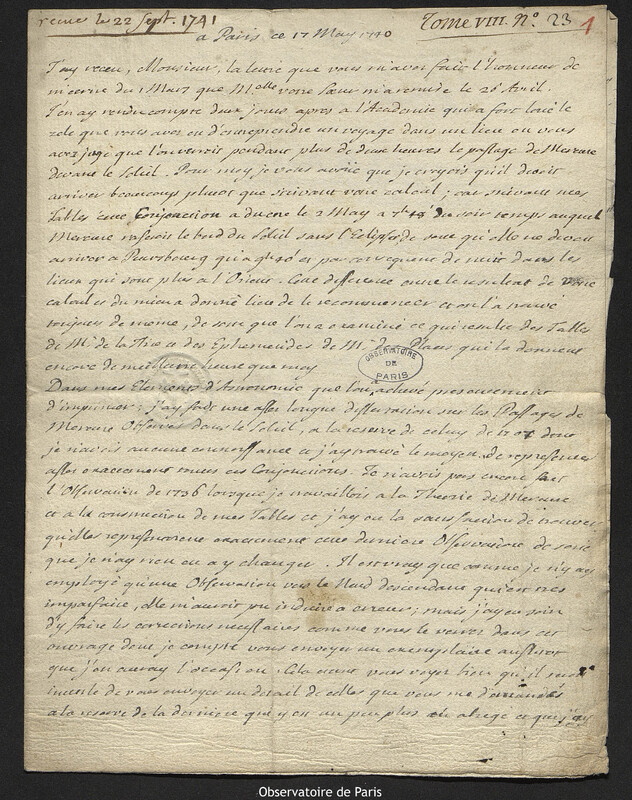 reçues le 22 Sept. 1741
Tome VIII. N.° 23
1
a Paris ce 17 May 1740
J'ay receu, Monsieur, la lettre que vous m'avez fait l'honneur de
m'ecrire du 1 Mars que Melle votre Sœur m'a remise le 28 Avril.
J'en ay rendu compte deux jours apres a l'Academie qui a fort loué le
zele que vous avez eu d'entreprendre un voyage dans un lieu ou vous
avez jugé que l'on verroit pendant plus de deux heures le passage de Mercure
devant le Soleil. Pour moy je vous avoüe que je croyois qu'il devoit
arriver beaucoup plutot que suivant votre calcul; car suivant mes
Tables cette Conjonction a du etre le 2 May a du soir temps auquel
Mercure rasoit le bord du Soleil sans l'Eclipser de sorte qu'elle ne devoit
arriver a Petersbourg qu'a et par consequent de nuit dans les
lieux qui sont plus a l'Orient. Cette difference entre le resultat de votre
calcul et du mien a donné lieu de le recommencer et on l'a trouvé
toujours de meme, de sorte que l'on a examiné ce qui resulte des Tables
de Mr. de la Hire et des Ephemerides de Mr. des Places qui la donnent
encore de meilleure heure que moy
OBSERVATOIRE
DE
PARIS
Dans mes Elements d'Astronomie que l'on a achevé presentement
d'imprimer; j'ay fait une assez longue dissertation sur les Passages de
Mercure Observés dans le Soleil, a la reserve de celuy de dont
je n'avois aucune connoissance et j'ay trouvé le moyen de representer
assez exactement toutes ces Conjonctions. Je n'avois pas encore fait
l'Observation de 1736 lorsque je travaillois a la Theorie de Mercure
et a la construction de mes Tables et j'ay eu la satisfaction de trouver
qu'elles representoient exactement cette derniere Observation de sorte
que je n'ay rien eu a y changer. Il est vray que comme je n'y ay
employé qu'une Observation vers le Nœud descendant qui est tres
imparfaite, elle m'auroit pu induire a erreur; mais j'ay eu soin
d'y faire les corrections necessaires comme vous le verrez dans cet
ouvrage dont je compte vous envoyer un exemplaire aussitost
que j'en auray l'occasion. Cela etant vous voyez bien qu'il seroit
inutile de vous envoyer un detail de celles que vous me demandez
a la reserve de la derniere qui y est un peu plus en abregé et que j'ay
Observatoire de Paris